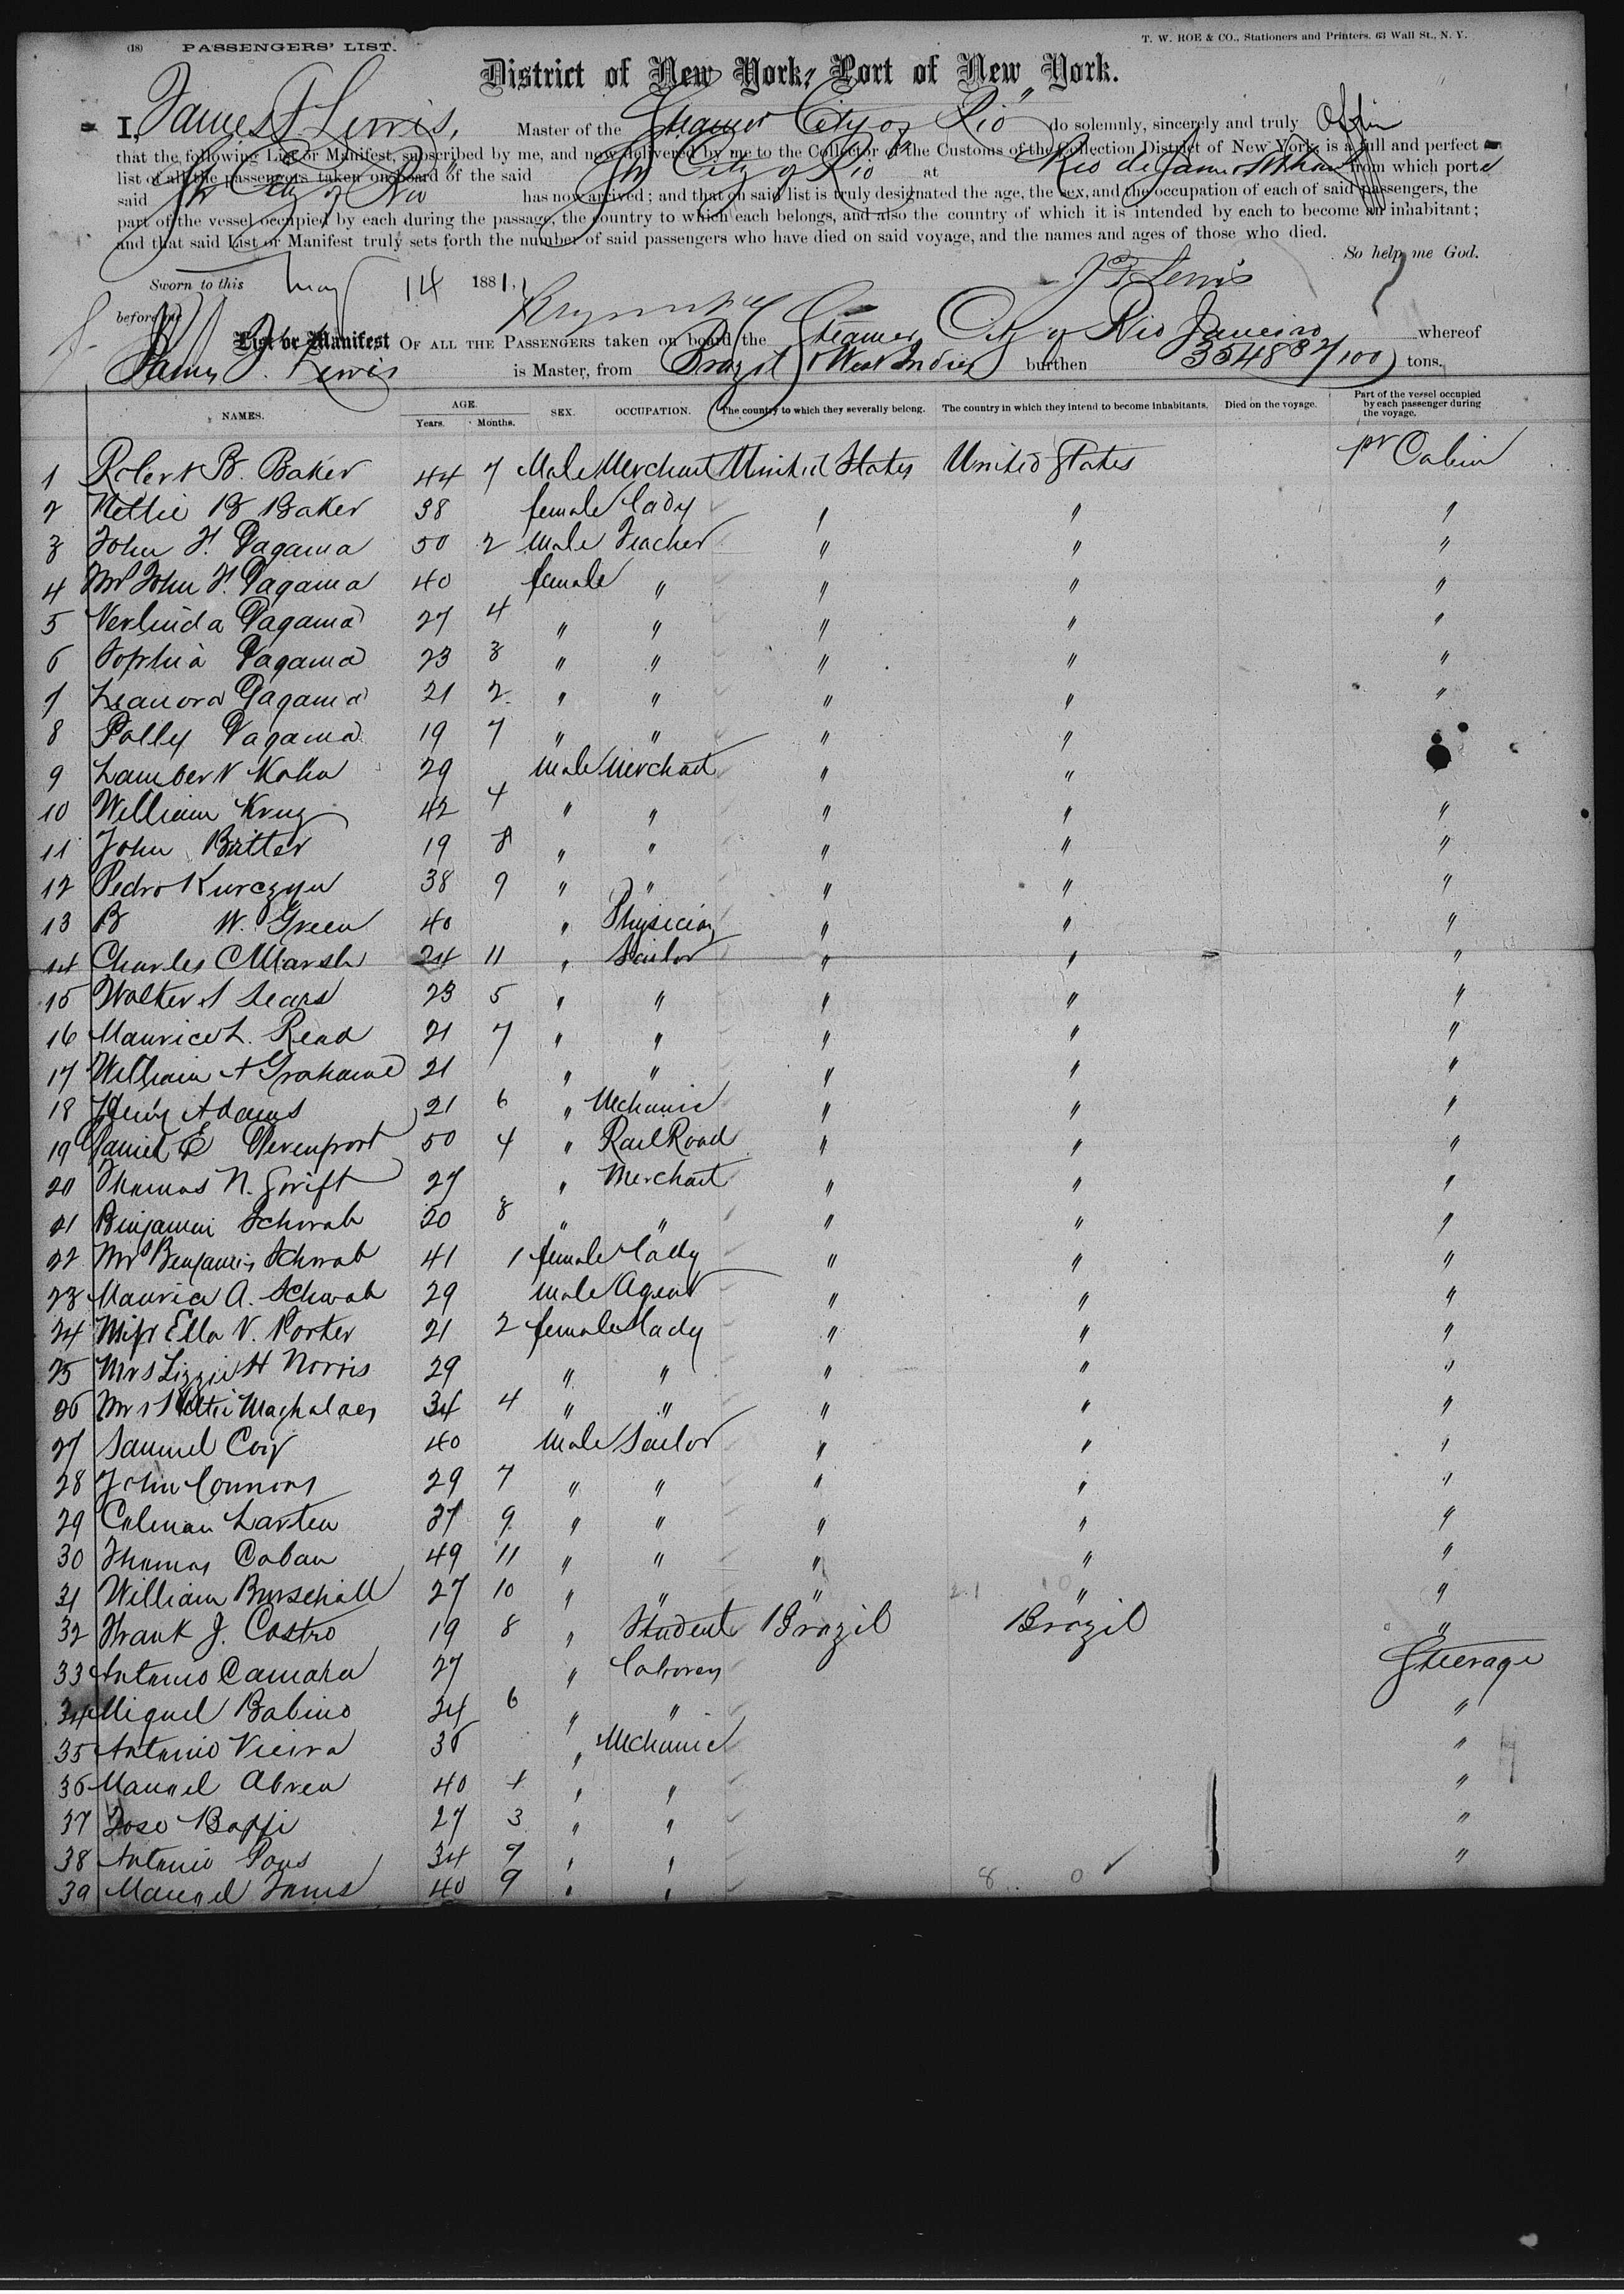 (18) PASSENGERS' LIST.
T. W. ROE & CO., Stationers and Printers. 63 Wall St., N. Y.
District of New York, Port of New York.
I, James F Lewis, Master of the Steamer City of Rio do solemnly, sincerely and truly
that the following List or Manifest, subscribed by me, and now delivered by me to the Collector of the Customs of the Collection District of New York, is a full and perfect
list of all the passengers taken on board of the said Str City of Rio at Rio de Janeiro from which port
said Str City of Rio has now arrived; and that on said list is truly designated the age, the sex, and the occupation of each of said passengers, the
part of the vessel occupied by each during the passage, the country to which each belongs, and also the country of which it is intended by each to become an inhabitant;
and that said List or Manifest truly sets forth the number of said passengers who have died on said voyage, and the names and ages of those who died.
So help me God.
Sworn to this May 14 1881, J F Lewis
before me
List or Manifest OF ALL THE PASSENGERS taken on board the Steamer City of Rio Janeiro whereof
James F. Lewis is Master, from Brazil & West Indies burthen 3548 32/100 tons.
NAMES. AGE. Years. Months. SEX. OCCUPATION. The country to which they severally belong. The country in which they intend to become inhabitants. Died on the voyage. Part of the vessel occupied by each passenger during the voyage.
1 Robert B. Baker 44 7 Male Merchant United States United States Cabin
2 Nettie B Baker 38 female lady " " "
3 John F. Dagama 50 2 Male Teacher " " "
4 Mrs John F. Dagama 40 female " " " "
5 Verlinda Dagama 27 4 " " " " "
6 Sophia Dagama 23 3 " " " " "
7 Leanora Dagama 21 2 " " " " "
8 Polly Dagama 19 7 " " " "
9 Lambert Kahn 29 Male Merchant " "
10 William Krug 42 4 " " " " "
11 John Britter 19 8 " " " " "
12 Pedro Kurczyn 38 9 " " " " "
13 B W. Green 40 " Physician " " "
14 Charles C Marsh 24 11 " Sailor " " "
15 Walter S Sears 23 5 " " " " "
16 Maurice L. Read 21 7 " " " " "
17 William A Grahame 21 " " " " "
18 Henry Adams 21 6 " Mechanic " " "
19 Daniel E Devenport 50 4 " Rail Road " " "
20 Thomas N. Swift 27 " Merchant " " "
21 Benjamin Schwab 50 8 " " " " "
22 Mrs Benjamin Schwab 41 1 female lady " " "
23 Maurice A. Schwab 29 male Agent " " "
24 Miss Ella V. Porter 21 2 female lady " " "
25 Mrs Lizzie H Norris 29 " " " " "
26 Mrs 34 4 " " " " "
27 Samuel 40 Male Sailor " " "
28 John Connors 29 7 " " " " "
29 Colman 37 9 " " " " "
30 Thomas Caban 49 11 " " " " "
31 William Burschall 27 10 " " " " "
32 Frank J. Castro 19 8 " Student Brazil Brazil "
33 Antonio Camara 27 " laborer Steerage
34 Miguel Babino 34 6 " " "
35 Antonio Vieira 36 " Mechanic "
36 Manuel Abreu 40 4 " " "
37 Jose 27 3 " " "
38 Antonio Pous 34 7 " " "
39 Manuel 40 9 " "